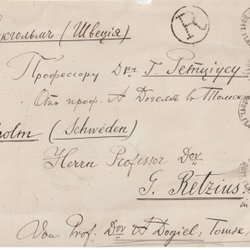 кгольмъ (Швецiя)
T
Профессору Dr Г. Ретцiусу
Отъ проф. А Догеля въ Томск
holm (Schweden)
Herrn Professor Dor
G. Retzius
Von Prof. Dor A Dogiel, Tomsk